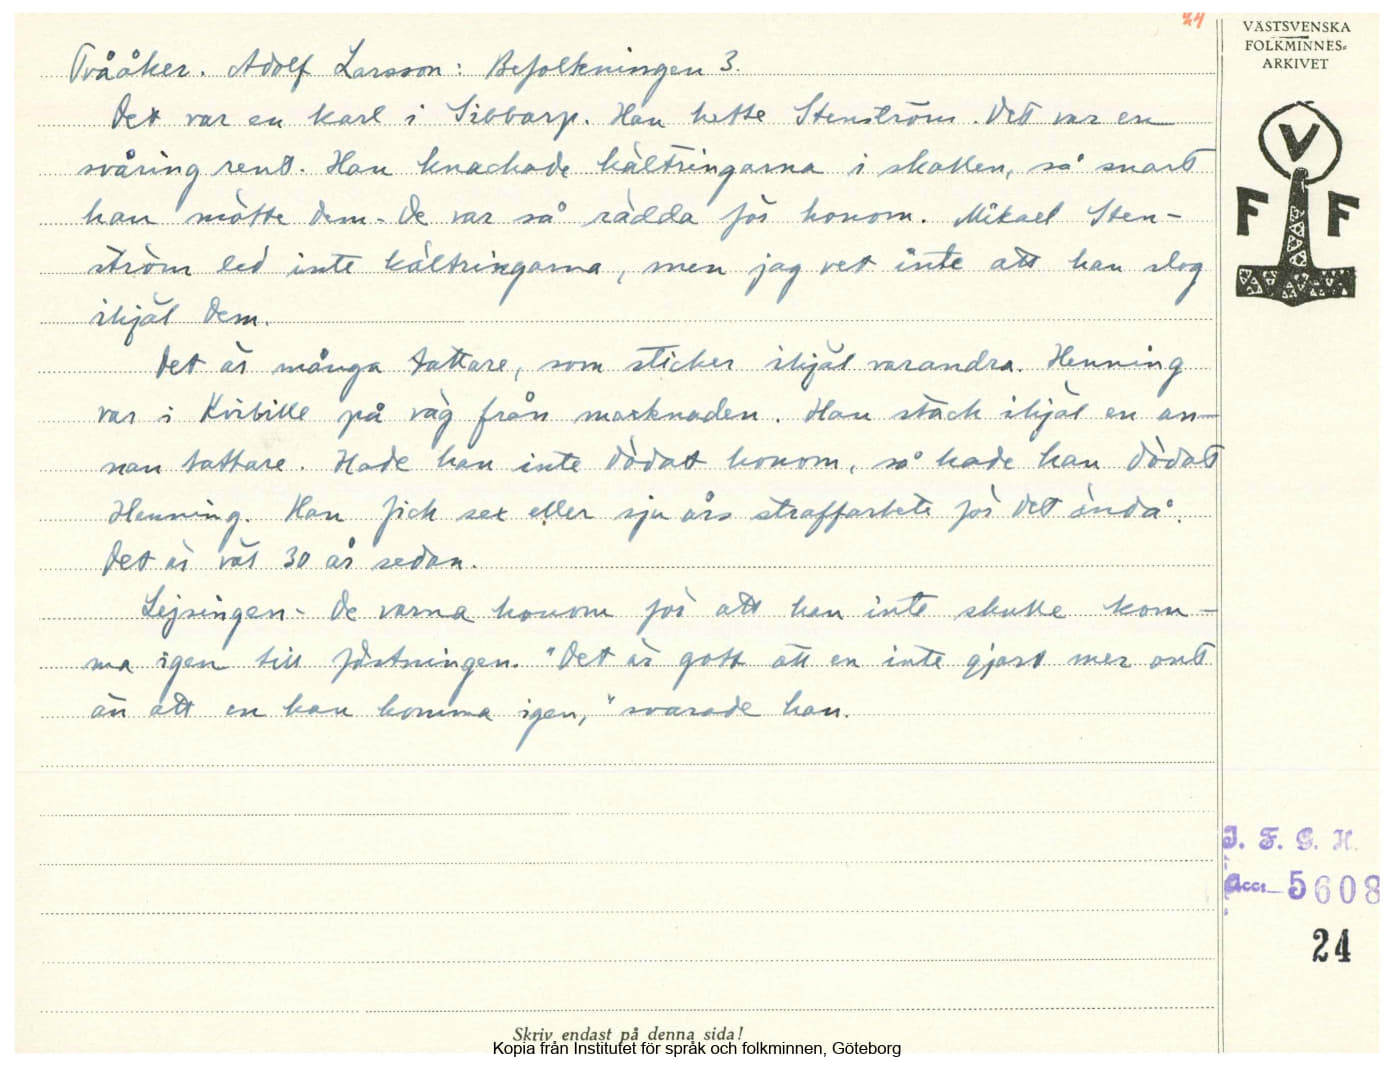 24
VÄSTSVENSKA
FOLKMINNES-
ARKIVET
V
F F
Tvååker. Adolf Larsson: Befolkningen 3.
Det var en karl i Sibbarp. Han hette Stenström. Det var en
svåring rent. Han knackade kältringarna i skallen, så snart
han mötte dem. De var så rädda för honom. Mikael Sten-
ström led inte kältringarna, men jag vet inte att han slog
ihjäl dem.
Det är många tattare, som sticker ihjäl varandra. Henning
var i Kvibille på väg från marknaden. Han stack ihjäl en an-
nan tattare. Hade han inte dödat honom, så hade han dödat
Henning. Han fick sex eller sju års straffarbete för det ändå.
Det är väl 30 år sedan.
Lejsingen - De varna honom för att han inte skulle kom-
ma igen till fästningen. "Det är gott att en inte gjort mer ont
än att en kan komma igen," svarade han.
I. F. G. H.
Acc. 5608
24
Skriv endast på denna sida!
Kopia från Institutet för språk och folkminnen, Göteborg